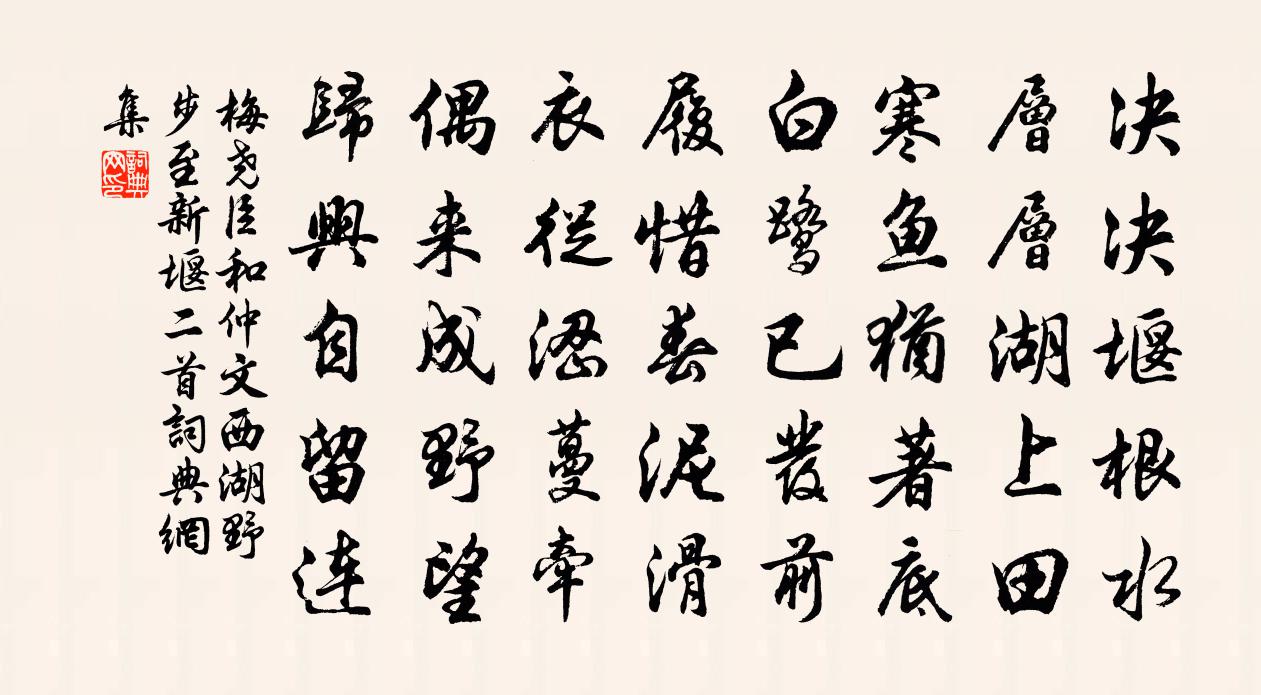 決決堰根水
層層湖上田
寒魚猶著底
白鷺已發前
履惜春泥滑
衣從澀蔓牽
偶来成野望
歸興自留連
梅尧臣和仲文西湖野
步至新堰二首詞典網
集
詞典網印